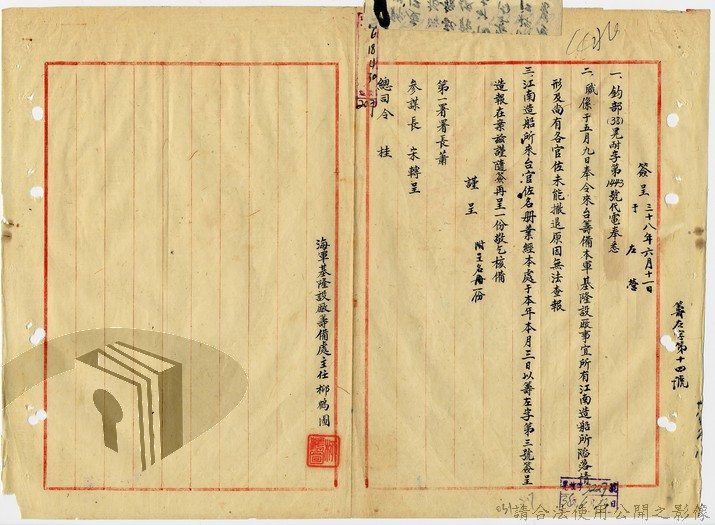 籌左字第十四號
簽呈 三十八年六月十一日
于左營
一、鈞部(38)晃耐字第1443號代電奉悉
二、職係于五月九日奉令來台籌備本軍基隆設廠事宜所有江南造船所陷落情
形及尚有各官佐未能撤退原因無法查報
三、江南造船所來台官佐名册業經本處于本年本月三日以籌左字第三號簽呈
造報在案茲謹隨簽再呈一份敬乞核備
謹呈
附呈名册一份
第一署署長蕭
參謀長宋轉呈
總司令桂
海軍基隆設廠籌備處主任柳鵬圖
請合法使用公開之影像